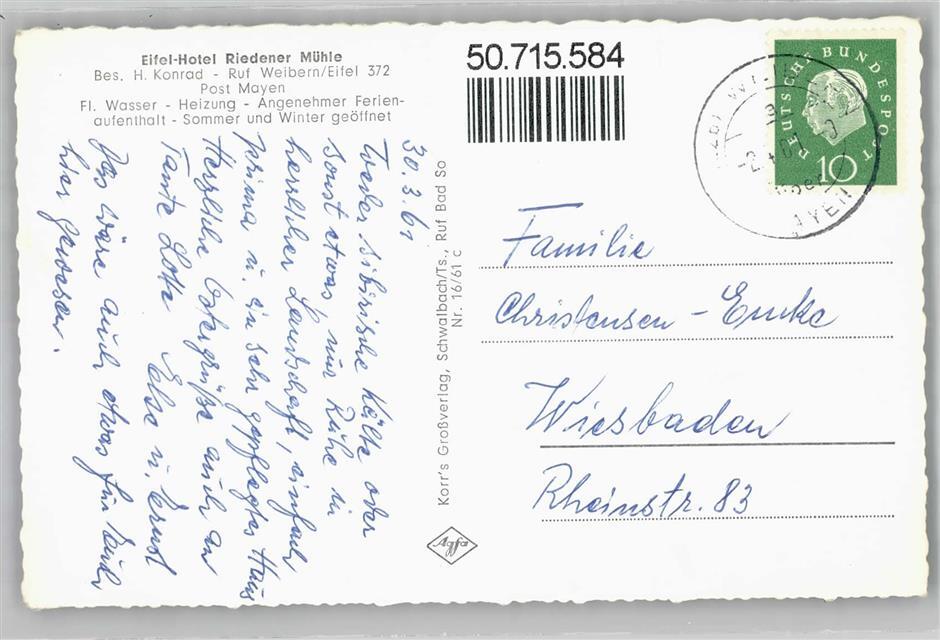 Eifel-Hotel Riedener Mühle
Bes. H. Konrad - Ruf Weibern/Eifel 372
Post Mayen
Fl. Wasser - Heizung - Angenehmer Ferien-
aufenthalt - Sommer und Winter geöffnet
50.715.584
DEUTSCHE BUNDESPOST
10
AYEN
30.3.61
Weder sibirische Kälte oder
sonst etwas, nur Ruhe in
herrlicher Landschaft, einfach
prima u. ein sehr gepflegtes Haus
Herzliche Ostergrüße auch an
Tante Lotte Else u. Ernst
Das wäre auch etwas für Euch
hier gewesen.
Korr's Großverlag, Schwalbach/Ts., Ruf Bad So
Nr. 16/61 c
Agfa
Familie
Christensen - Emke
Wiesbaden
Rheinstr. 83